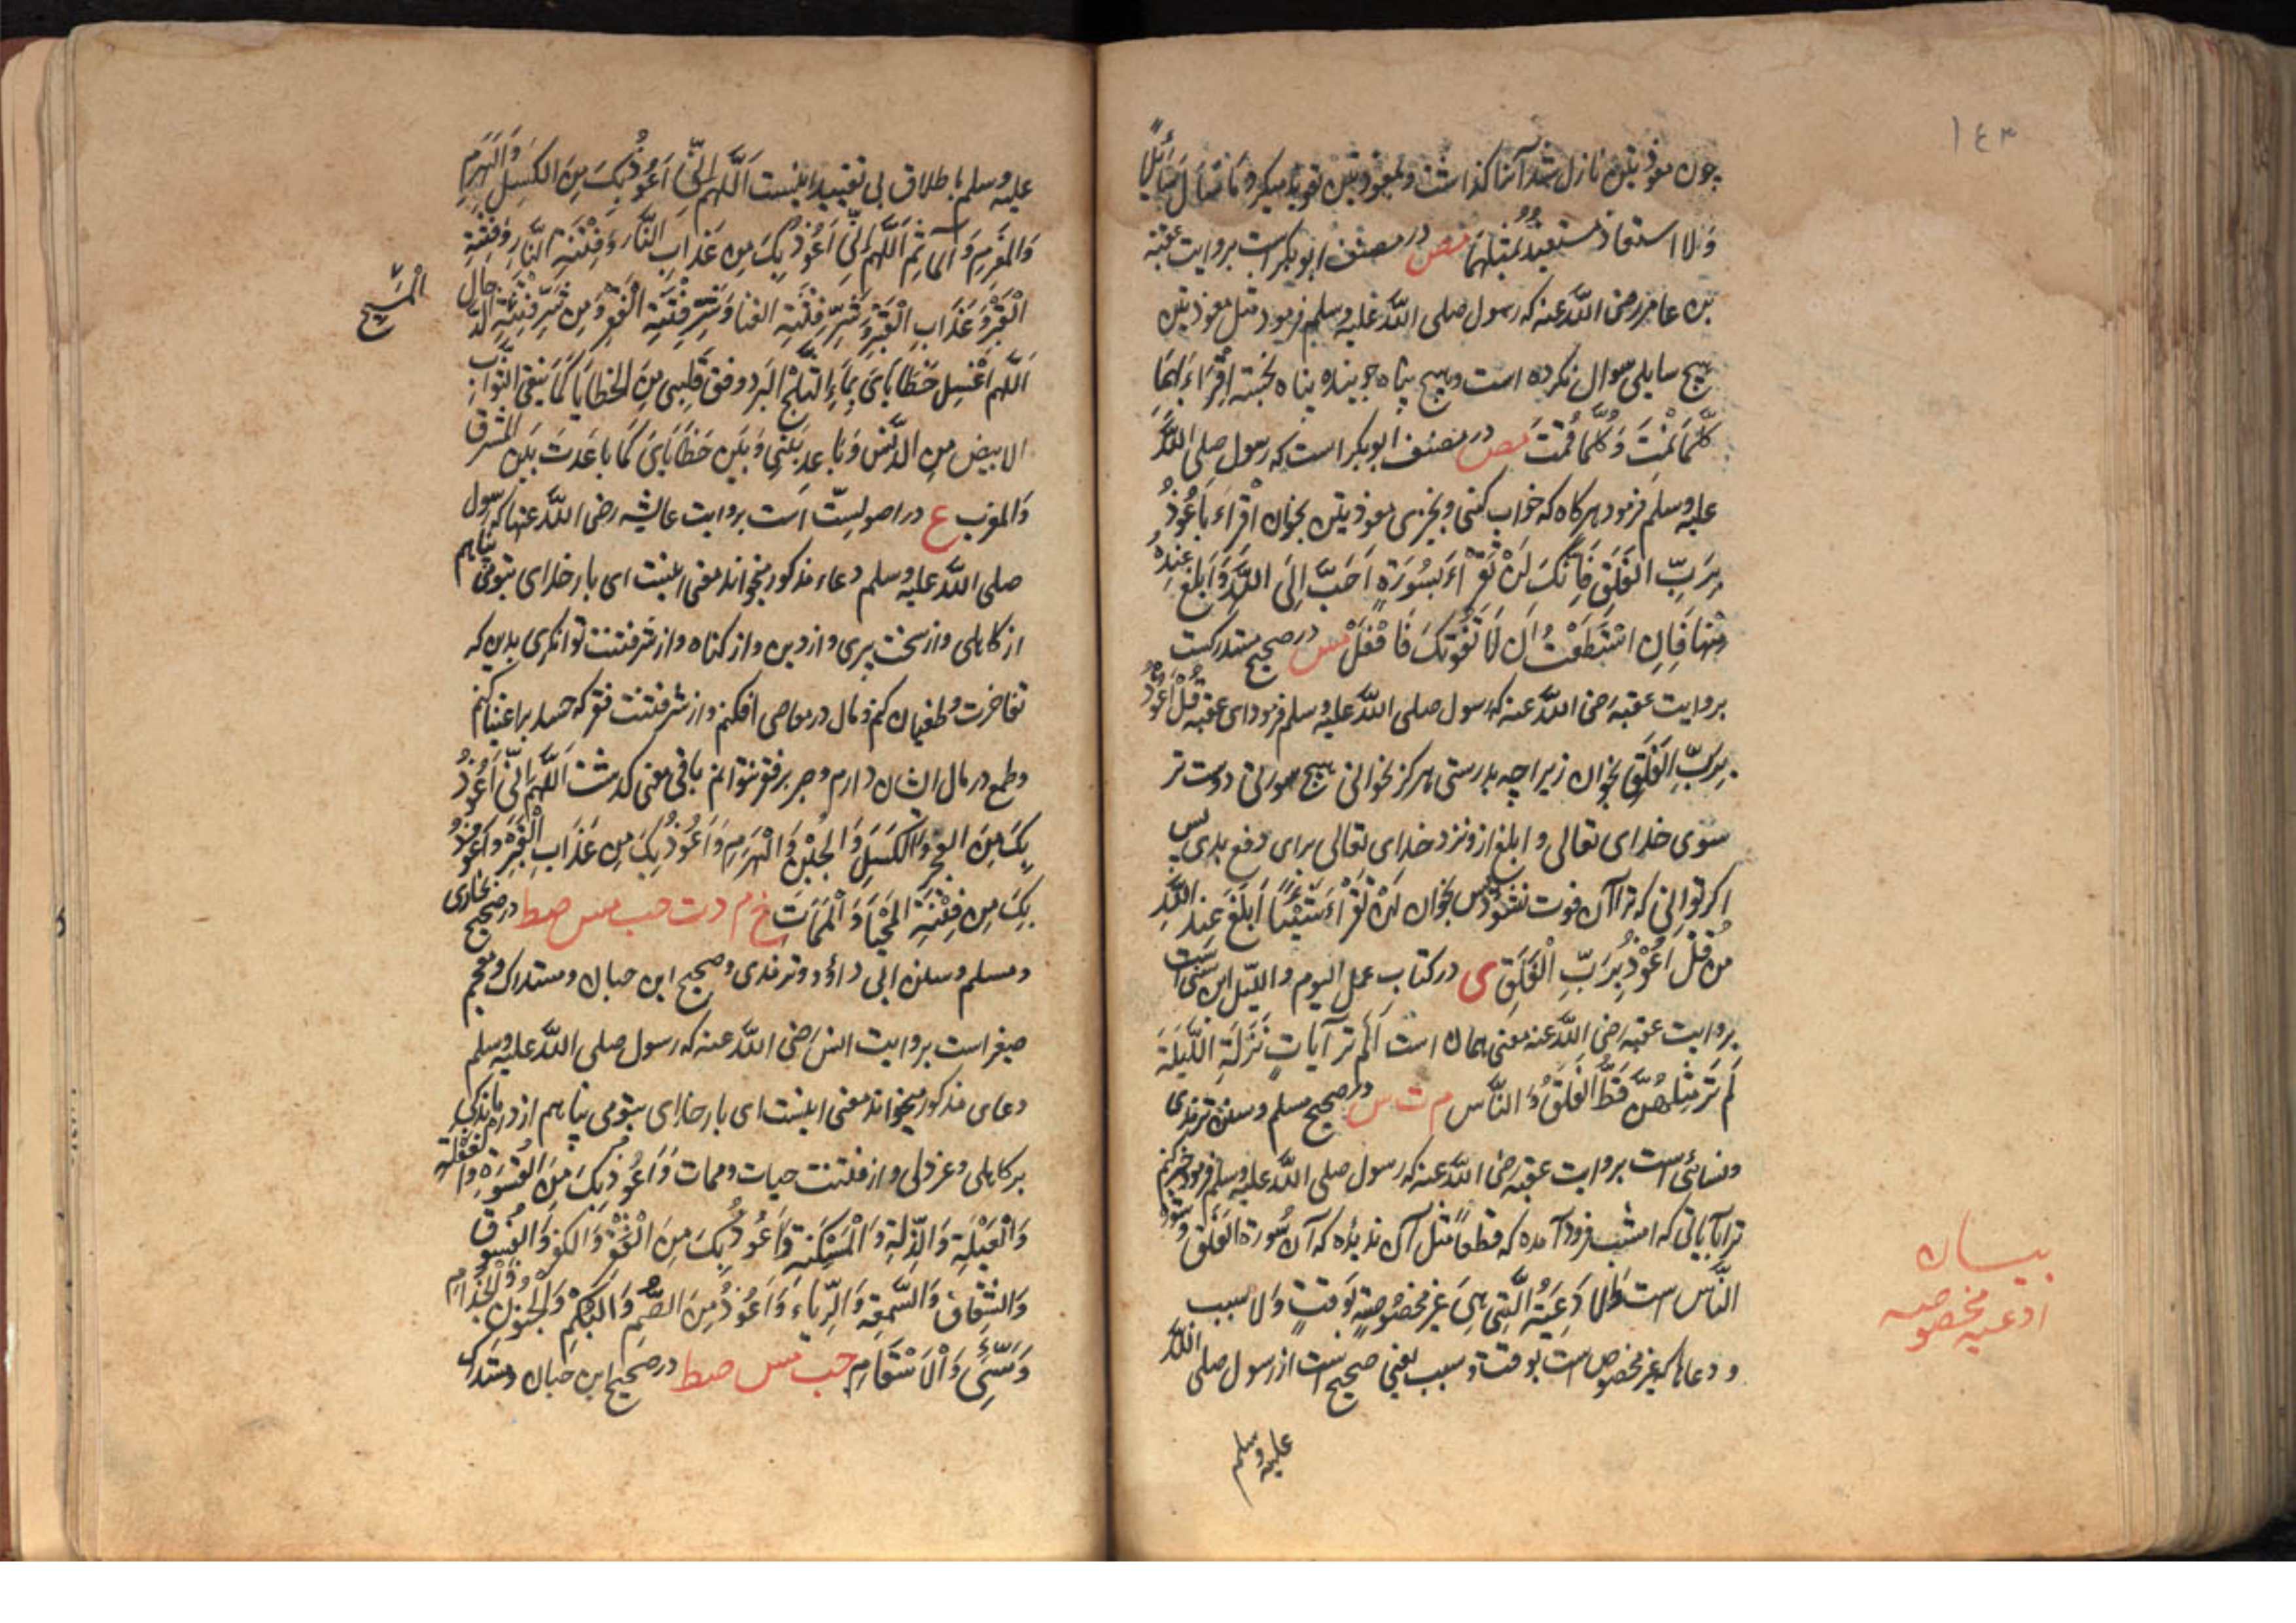 ١٤٣
چون معوذتین نازل شد آنها کذاشت و بمعوذتین تعویذ میکرد مَا سَأَلَ سَائِلٌ
وَلا استعاذ مستعیذٌ بمثلهما مص در مصنف ابوبکر است بروایت عقبة
بن عامر رضی اللّه عنه که رسول صلی اللّه علیه وسلم فرمود مثل معوذتین
هیچ سایلی سوال نکرده است و هیچ پناه جوینده پناه نجسته اِقْرَاءْ بِهِمَا
کُلَّمَا نِمْتَ وَ کُلَّمَا قُمْتَ مص در مصنف ابوبکر است که رسول صلی اللّه
علیه وسلم فرمود هرکاه که خواب کنی و بخیزی معوذتین بخوان اقْرَاءْ بِاَعُوْذُ
بِرَبِّ الفَلَقِ فَاِنَّکَ لَنْ تَقْرَاءَ بِسُوْرَةٍ اَحَبَّ اِلَی اللّهِ وَاَبْلَغَ عِنْدَهُ
مِنْهَا فَاِنِ اسْتَطَعْتَ اَنْ لَا تَفُوْتَکَ فَافْعَلْ مس در صحیح مستدرکست
بروایت عقبه رضی اللّه عنه که رسول صلی اللّه علیه وسلم فرمود ای عقبه قُلْ اَعُوْذُ
بِرَبِّ الْفَلَقِ بخوان زیراچه بدرستی هرکز نخوانی هیچ سورتی دوست تر
سوی خدای تعالی و ابلغ ازو نزد خدای تعالی برای دفع بدی پس
اکر توانی که ترا آن فوت نشود پس بخوان لَنْ تَقْرَاءَ شَیْئًا اَبْلَغَ عِنْدَ اللّهِ
مِنْ قُلْ اَعُوْذُ بِرَبِّ الْفَلَقِ ی در کتاب عمل الیوم واللیل ابن سنی است
بروایت عقبه رضی اللّه عنه معنی همان است اَلَمْ تَر آیَاتٍ نَزَلَتِ اللَّیْلَةَ
لَمْ تَرَ مِثْلَهُنَّ قَطُّ الْفَلَقُ وَ النَّاس م ت س در صحیح مسلم و سنن ترمذی
ونسائی است بروایت عقبه رضی اللّه عنه که رسول صلی اللّه علیه وسلم فرمود خبر کنم
ترا آیاتی که امشب فرود آمده که قطعاً مثل آن ندیده که آن سُورة الفَلَق و سورة
النَّاس است وَالاَدْعِیَةُ الَّتِی هِیَ غیر مَخصُوصةٍ بوَقتٍ وَلا سبب
و دعاها که غیر مخصوص است بوقت و سبب یعنی صحیح است از رسول صلی اللّه
علیه وسلم
بیان
ادعیه مخصوصه
علیه وسلم باطلاق بی تقیید اینست اَللّهُمَّ اِنِّی اَعُوْذُ بِکَ مِنَ الکَسَلِ وَالهَرَمِ
وَالمَغْرَمِ وَالمَاثَمِ اَللّهُمَّ اِنِّی اَعُوْذُ بِکَ مِنْ عَذَابِ النَّارِ وَفِتْنَةِ النَّارِ وَفِتْنَةِ
الْقَبْرِ وَعَذَابِ الْقَبْرِ وَشَرِّ فِتْنَةِ الغِنَا وَشَرِّ فِتْنَةِ الْفَقْرِ وَمِنْ شَرِّ فِتْنَةِ الدَّجال
الْمَسِیْحِ
اَللّهُمَّ اغْسِلْ خَطَایَایَ بِمَاءِ الثَّلْجِ والْبَرَد ونَقِّ قَلْبِی مِنَ الخَطَایَا کَمَا یُنَقّی الثَّوْبُ
الابیض مِنَ الدَّنَسِ وَبَاعِدْ بَیْنِی وَبَیْنَ خَطَایَایَ کَمَا بَاعَدتَ بَیْنَ المَشْرِق
وَالمغرب ع در اصول ستّ است بروایت عایشه رضی اللّه عنها که رسول
صلی اللّه علیه وسلم دعاء مذکور میخواند معنی اینست ای بار خدای بتو می پناهم
از کاهلی و از سخت پیری و از دین و از کناه و از شر فتنت توانکری بدین که
تفاخرت و طغیان کنم و مال در معاصی افکنم و از شر فتنت فقر که حسد بر اغنیا کنم
وطمع در مال ایشان دارم و صبر بر فقر نتوانم باقی معنی کذشت اَللّهُمَّ اِنِّی اَعُوْذُ
بِکَ مِنَ العَجْزِ وَالکَسَلِ وَالجُبْنِ وَالْهَرَمِ وَاَعُوْذُ بِکَ مِنْ عَذَابِ الْقَبْرِ وَاَعُوْذُ
بِکَ مِنْ فِتْنَةِ الْمَحْیَا وَالْمَمَاتِ خ م د ت حب مس صط در صحیح بخاری
و مسلم و سنن ابی داؤد و ترمذی و صحیح ابن حبان و مستدرک و معجم
صغیر است بروایت انس رضی اللّه عنه که رسول صلی اللّه علیه وسلم
دعای مذکور میخواند معنی اینست ای بار خدای بتو می پناهم از درماندکی
بر کاهلی و غر دلی و از فتنت حیات و ممات وَاَعُوْذُ بِکَ مِنَ القَسْوَةِ وَالْغَفْلَةِ
وَالْعَیْلَةِ وَالذِّلَّةِ وَالْمَسْکَنَةِ وَاَعُوْذُ بِکَ مِنَ الْفَقْرِ وَالکُفْرِ وَالْفُسُوْقِ
وَالشِّقَاقِ وَالسُّمْعَةِ وَالرِّیَاءِ وَاَعُوْذُ مِنَ الصَّمَمِ وَالبَکَمِ وَالْجُنُونِ وَالْجُذَامِ
وَسَیِّئِ وَالْاَسْقَامِ حب مس صط در صحیح ابن حبان و مستدرک